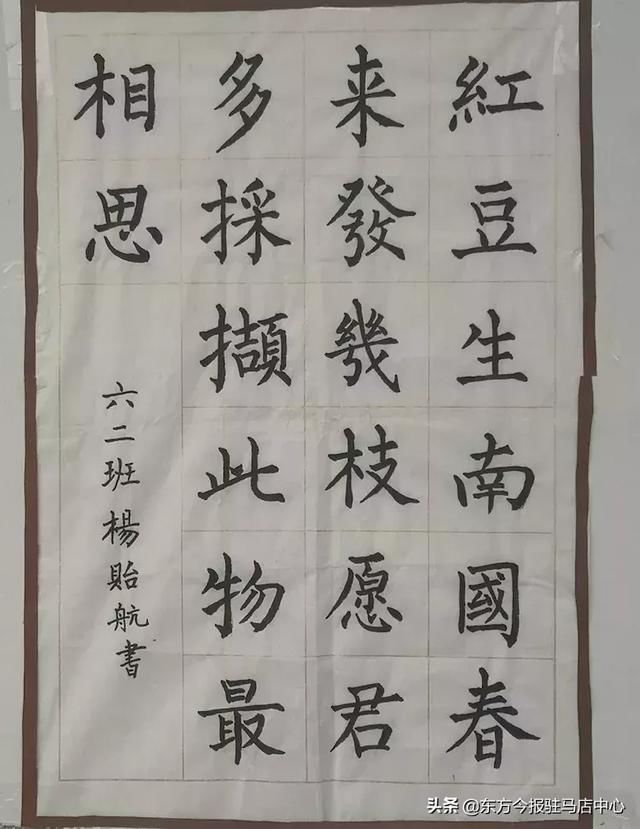 紅豆生南國春
来發幾枝愿君
多採擷此物最
相思
六二班楊貽航書
头条 @东方今报驻马店中心